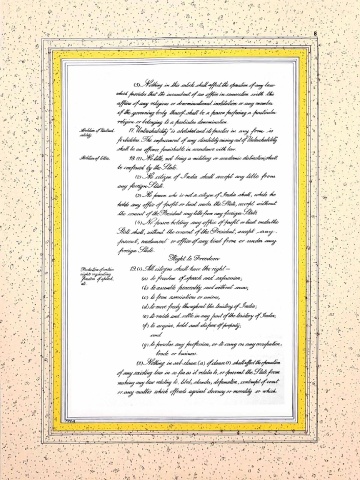 6
(5) Nothing in this article shall affect the operation of any law
which provides that the incumbent of an office in connection with the
affairs of any religious or denominational institution or any member
of the governing body thereof shall be a person professing a particular
religion or belonging to a particular denomination.
Abolition of Untouch-
ability.
17. "Untouchability" is abolished and its practice in any form is
forbidden. The enforcement of any disability arising out of "Untouchability"
shall be an offence punishable in accordance with law.
Abolition of titles.
18. (1) No title, not being a military or academic distinction, shall
be conferred by the State.
(2) No citizen of India shall accept any title from
any foreign State.
(3) No person who is not a citizen of India shall, while he
holds any office of profit or trust under the State, accept without
the consent of the President any title from any foreign State.
(4) No person holding any office of profit or trust under the
State shall, without the consent of the President, accept any
present, emolument or office of any kind from or under any
foreign State.
Right to Freedom
Protection of certain
rights regarding
freedom of speech,
etc.
19. (1) All citizens shall have the right—
(a) to freedom of speech and expression;
(b) to assemble peaceably and without arms;
(c) to form associations or unions;
(d) to move freely throughout the territory of India;
(e) to reside and settle in any part of the territory of India;
(f) to acquire, hold and dispose of property;
and
(g) to practise any profession, or to carry on any occupation,
trade or business.
(2) Nothing in sub-clause (a) of clause (1) shall affect the operation
of any existing law in so far as it relates to, or prevent the State from
making any law relating to, libel, slander, defamation, contempt of court
or any matter which offends against decency or morality or which